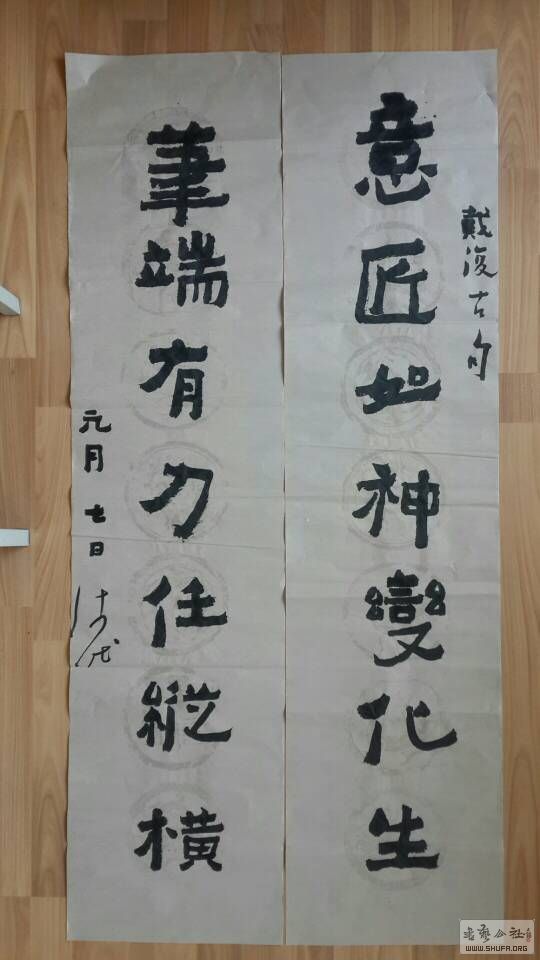 戴復古句
意匠如神變化生
筆端有力任縱橫
元月七日
书艺公社
WWW.SHUFA.ORG